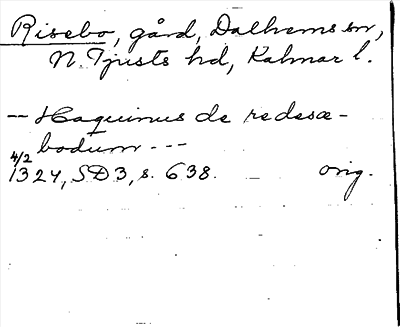 Risebo, gård, Dalhems sn,
N. Tjusts hd, Kalmar l.
-- Haquinus de redesæ-
bodum ---
4/2
1324, SD3, s. 638. orig.